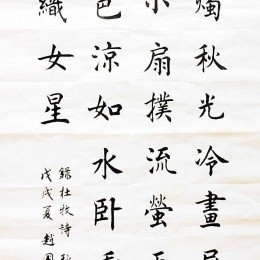 燭秋光冷畫屏
小扇撲流螢天
色涼如水臥看
織女星
錄杜牧詩秋
戊戌夏趙國